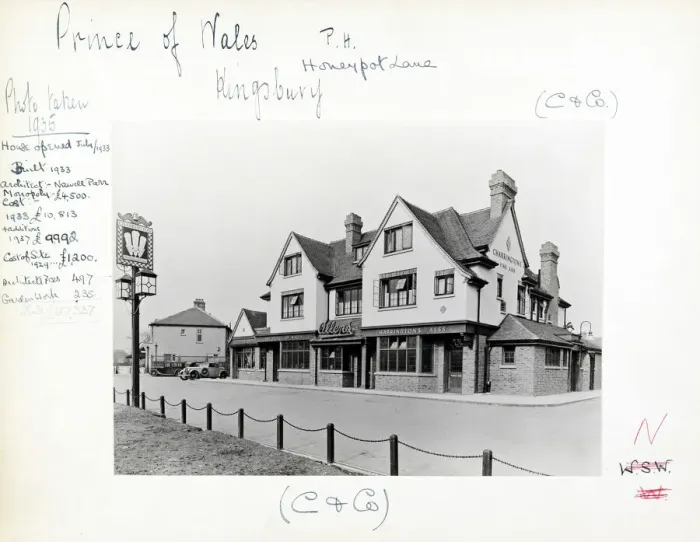 Prince of Wales P.H.
Honeypot Lane
Kingsbury
(C & Co.)
Photo taken
1935
House opened July/1933
Built 1933
Architect:- Nowell Parr
Monopoly £4,500.
Cost:-
1933 £10,813
+additions
1937 £9992
Cost of Site £1200.
Architects Fees 497
Garden Work 235
CHARRINGTONS
CHARRINGTONS ALES
(C & Co)
N
W.S.W.